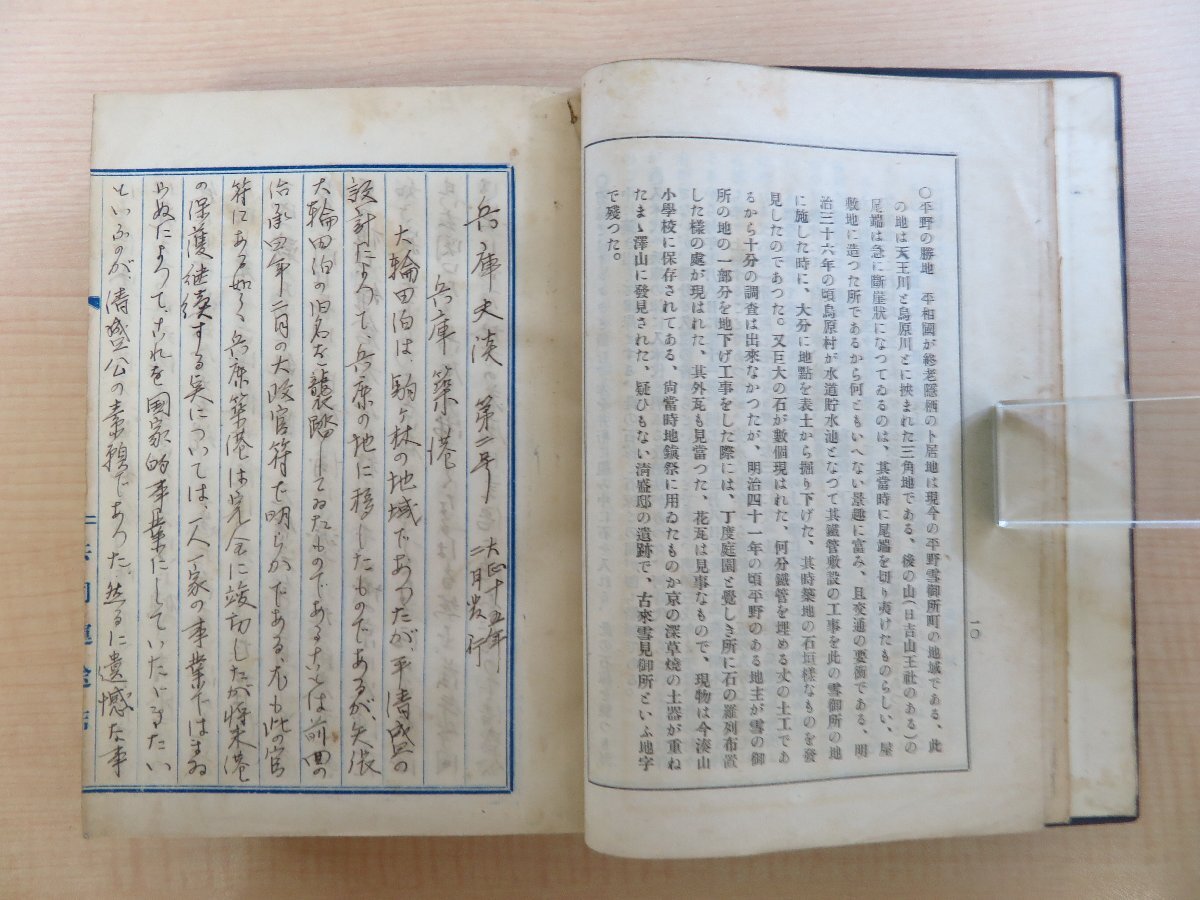 一〇
〇平野の勝地　平相國が終老隱栖の卜居地は現今の平野雪御所町の地域である、此
の地は天王川と烏原川とに挾まれた三角地である、後の山(日吉山王社のある)の
尾端は急に斷崖狀になつてゐるのは、其當時に尾端を切り夷けたものらしい、屋
敷地に造つた所であるから何ともいへない景趣に富み、且交通の要衝である、明
治三十六年の頃烏原村が水道貯水池となづて其鐵管敷設の工事を此の雪御所の地
に施した時に、大分に地點を表土から掘り下げた、其時築地の石垣樣なものを發
見したのであつた。又巨大の石が數個現はれた、何分鐵管を埋める丈の土工であ
るから十分の調査は出來なかつたが、明治四十一年の頃平野のある地主が雪の御
所の地の一部分を地下げ工事をした際には、丁度庭園と覺しき所に石の羅列布置
した樣の處が現はれた、其外瓦も見當つた、花瓦は見事なもので、現物は今湊山
小學校に保存されてある、尙當時地鎭祭に用ゐたものか京の深草燒の土器が重ね
たまゝ澤山に發見された、疑ひもない淸盛邸の遺跡で、古來雪見御所といふ地字
で殘つた。
兵庫史談 第二号 大正十五年
二月発行
兵庫築港
大輪田泊は、駒ヶ林の地域であつたが、平清盛の
設計によつて、兵庫の地に移したものであるが、矢張
大輪田泊の旧名を襲踏してゐたものであることは前囬の
治承四年二月の大政官符で明らかである、尤も此の官
符にある如く、兵庫築港は完全に竣切したが将来港
の保護継続する点については、一人一家の事業ではまゐ
らぬによつて、これを国家的事業にしていたゞきたい
といふのが、清盛公の素願であつた。然るに遺憾な事